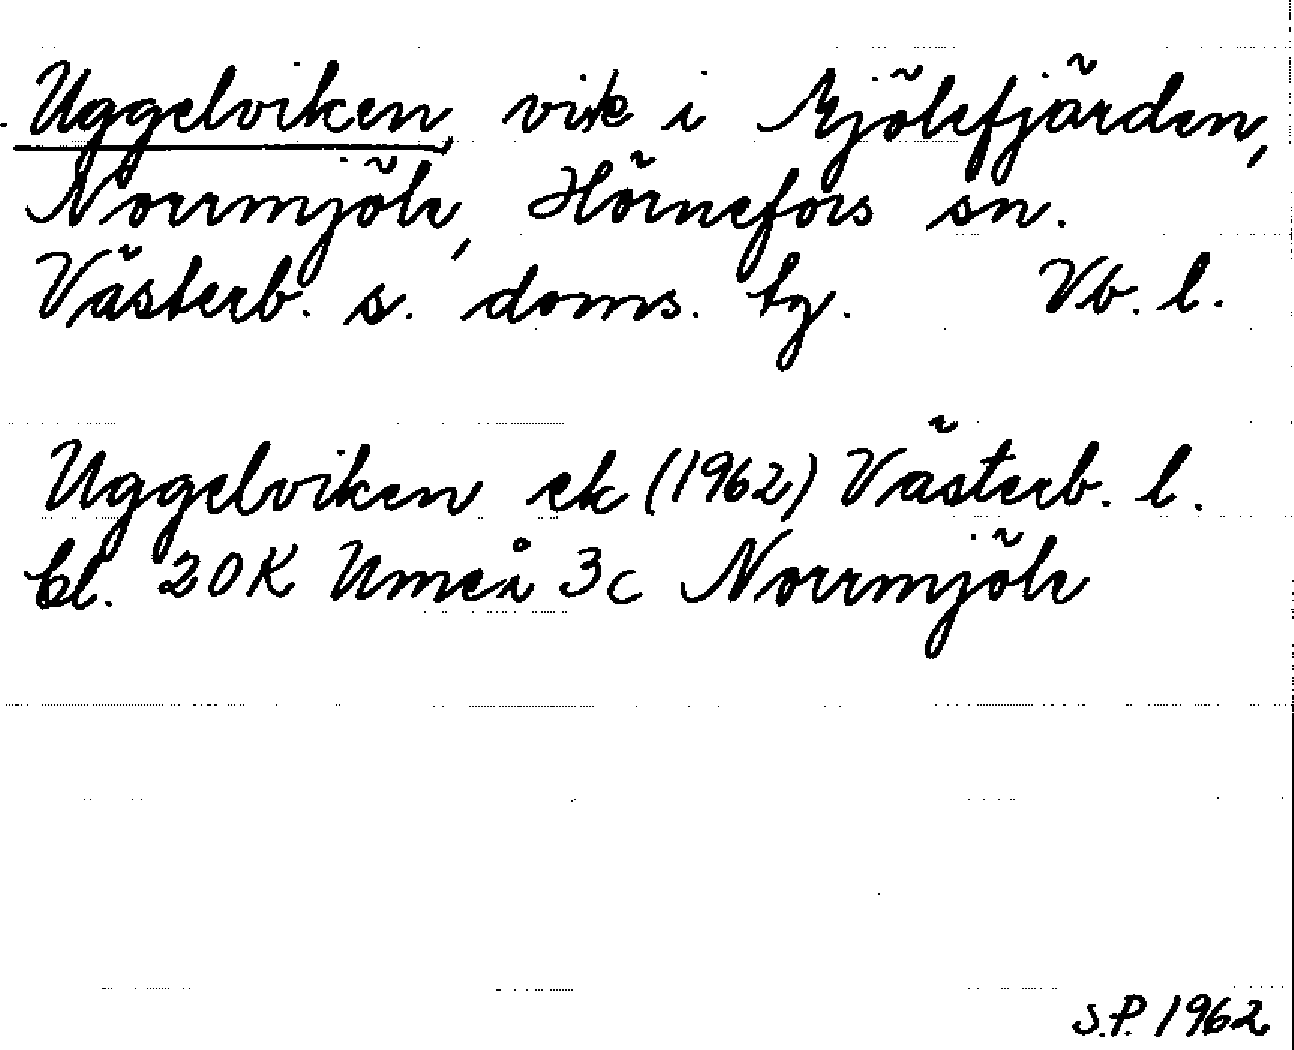 Uggelviken, vik i Mjölefjärden,
Norrmjöle, Hörnefors sn.
Västerb. s. doms. tg. Vb. l.
Uggelviken ek (1962) Västerb. l.
bl. 20K Umeå 3c Norrmjöle
S.P. 1962